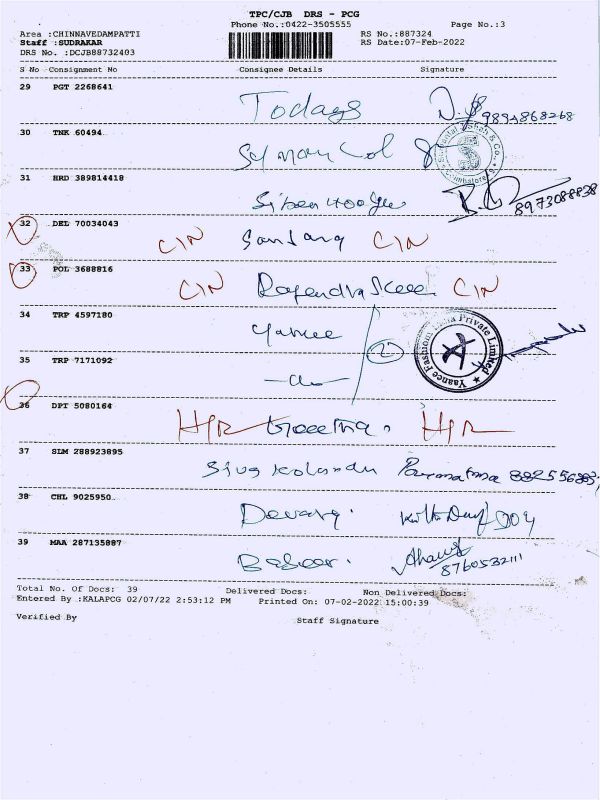 TPC/CJB DRS - PCG
Phone No.:0422-3505555 Page No.:3
Area :CHINNAVEDAMPATTI RS No.:887324
Staff :SUDRAKAR RS Date:07-Feb-2022
DRS No. :DCJB88732403
S No Consignment No Consignee Details Signature
29 PGT 2268641 Todays 9894868268
30 TNK 60494
31 HRD 389814418 8973088838
32 DEL 70034043 CIN Sandang CIN
33 POL 3688816 CIN CIN
34 TRP 4597180 Yaanee
Yaanee Fashion India Private Limited
35 TRP 7171092
36 DPT 5080164 Geetha.
37 SLM 288923895 Sivakolandu Parmatma
38 CHL 9025950 Devaraj.
39 MAA 287135887 Baboor. 8760532111
Total No. Of Docs: 39 Delivered Docs: Non Delivered Docs:
Entered By :KALAPCG 02/07/22 2:53:12 PM Printed On: 07-02-2022 15:00:39
Verified By Staff Signature